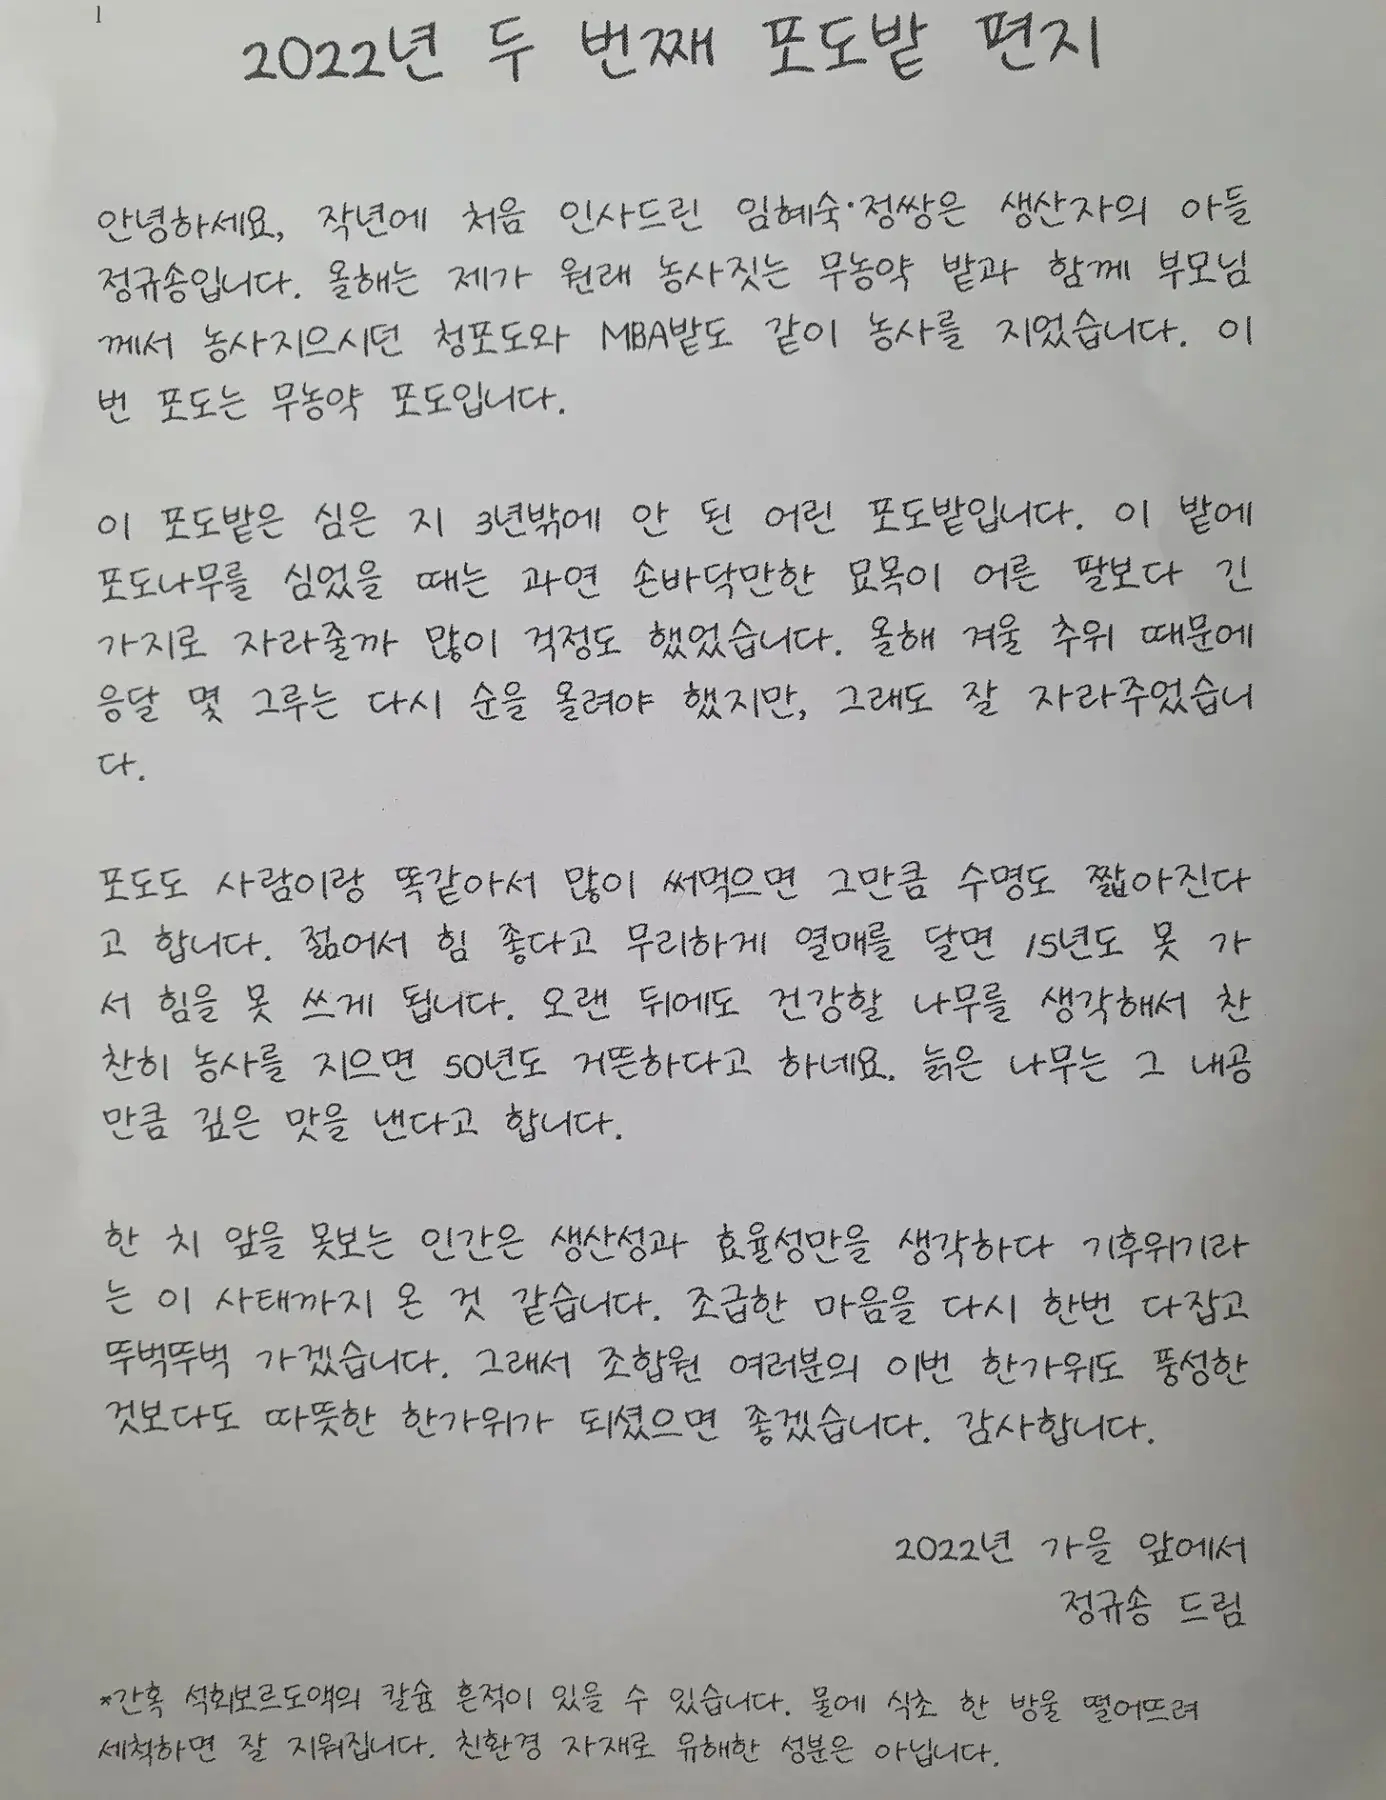 1
2022년 두 번째 포도밭 편지
안녕하세요, 작년에 처음 인사드린 임혜숙·정쌍은 생산자의 아들
정규송입니다. 올해는 제가 원래 농사짓는 무농약 밭과 함께 부모님
께서 농사지으시던 청포도와 MBA밭도 같이 농사를 지었습니다. 이
번 포도는 무농약 포도입니다.
이 포도밭은 심은 지 3년밖에 안 된 어린 포도밭입니다. 이 밭에
포도나무를 심었을 때는 과연 손바닥만한 묘목이 어른 팔보다 긴
가지로 자라줄까 많이 걱정도 했었습니다. 올해 겨울 추위 때문에
응달 몇 그루는 다시 순을 올려야 했지만, 그래도 잘 자라주었습니
다.
포도도 사람이랑 똑같아서 많이 써먹으면 그만큼 수명도 짧아진다
고 합니다. 젊어서 힘 좋다고 무리하게 열매를 달면 15년도 못 가
서 힘을 못 쓰게 됩니다. 오랜 뒤에도 건강할 나무를 생각해서 찬
찬히 농사를 지으면 50년도 거뜬하다고 하네요. 늙은 나무는 그 내공
만큼 깊은 맛을 낸다고 합니다.
한 치 앞을 못보는 인간은 생산성과 효율성만을 생각하다 기후위기라
는 이 사태까지 온 것 같습니다. 조급한 마음을 다시 한번 다잡고
뚜벅뚜벅 가겠습니다. 그래서 조합원 여러분의 이번 한가위도 풍성한
것보다도 따뜻한 한가위가 되셨으면 좋겠습니다. 감사합니다.
2022년 가을 앞에서
정규송 드림
*간혹 석회보르도액의 칼슘 흔적이 있을 수 있습니다. 물에 식초 한 방울 떨어뜨려
세척하면 잘 지워집니다. 친환경 자재로 유해한 성분은 아닙니다.